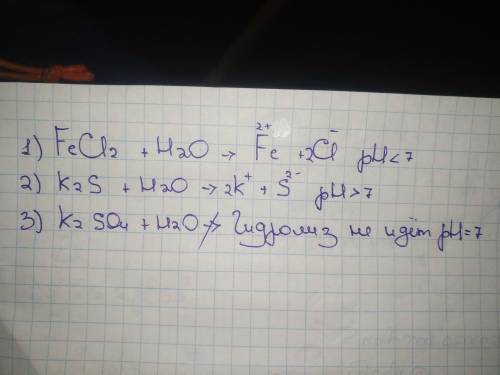 1) FeCl₂ + H₂O → Fe²⁺ + 2Cl⁻ pH < 7
2) K₂S + H₂O → 2K⁺ + S²⁻ pH > 7
3) K₂SO₄ + H₂O ↛ Гидролиз не идёт pH = 7